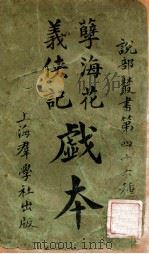 說部叢書第四十六種
孽海花
義俠記
戲本
上海羣學社出版